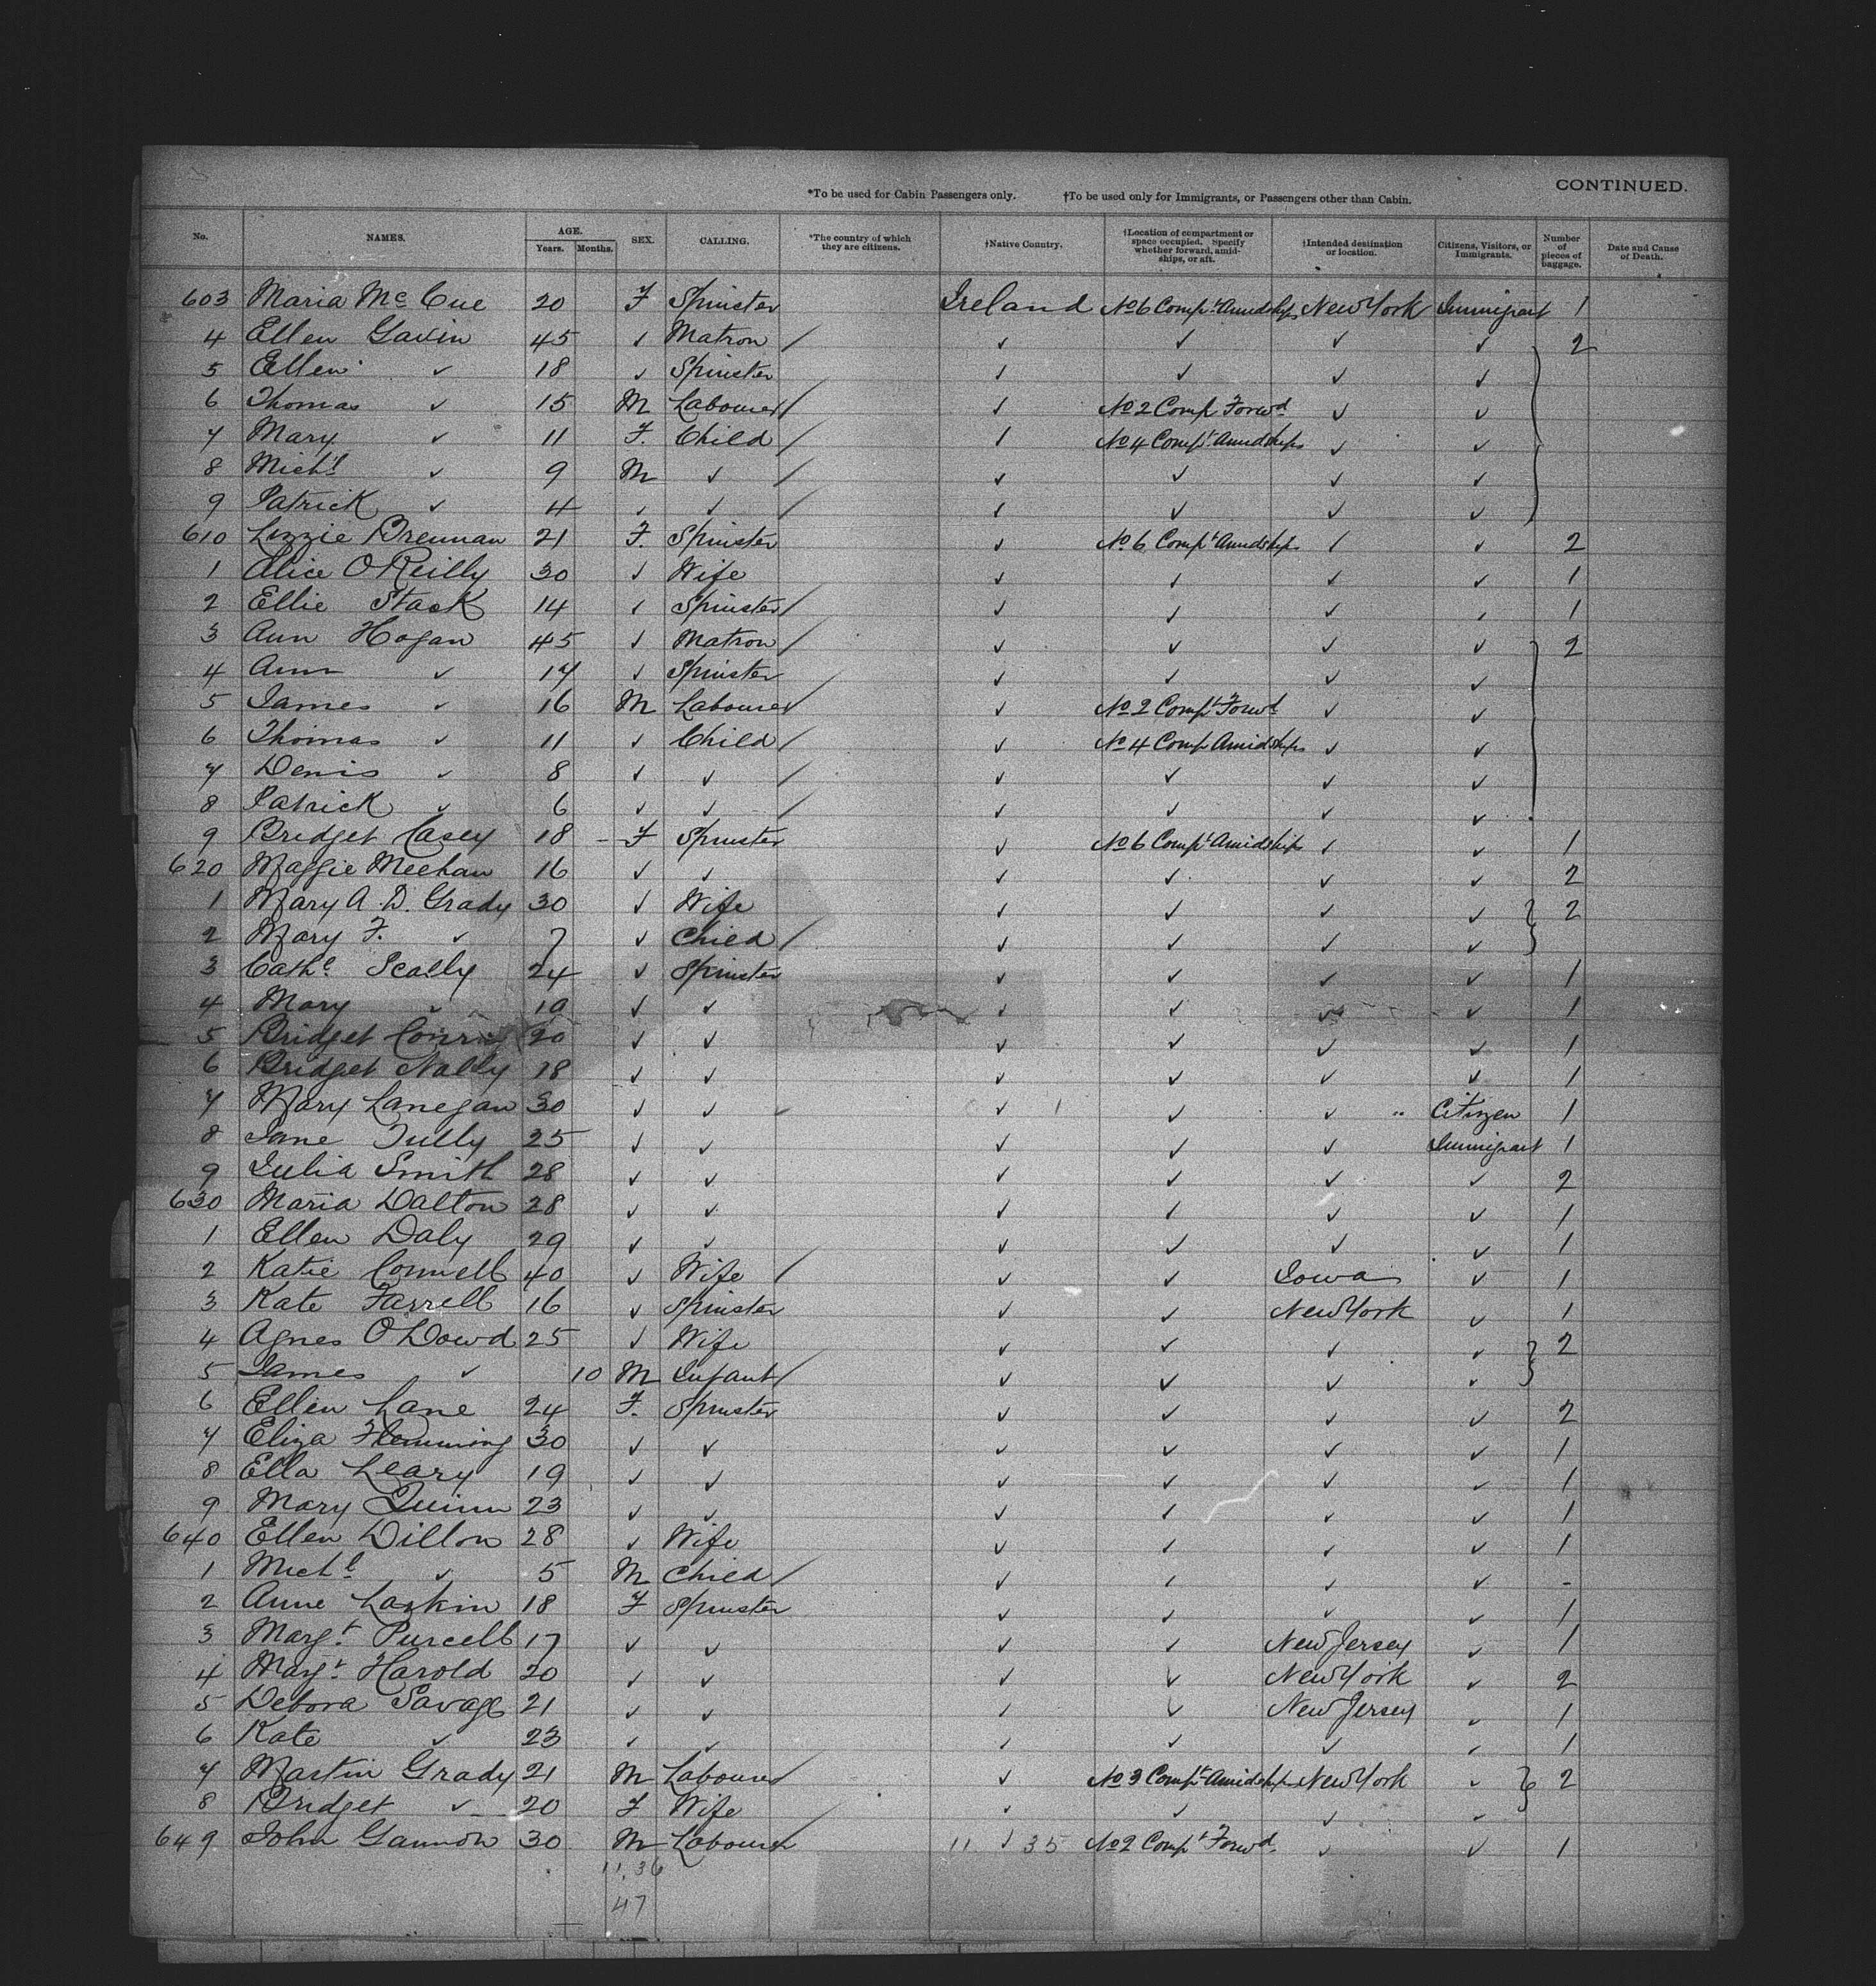 CONTINUED.
*To be used for Cabin Passengers only. †To be used only for Immigrants, or Passengers other than Cabin.
No. NAMES. AGE. Years. Months. SEX. CALLING. *The country of which they are citizens. †Native Country. †Location of compartment or space occupied. Specify whether forward, amidships, or aft. †Intended destination or location. Citizens, Visitors, or Immigrants. Number of pieces of baggage. Date and Cause of Death.
603 Maria Mc Cue 20 F Spinster Ireland No 6 Compt. Amidships New York Immigrant 1
4 Ellen Gavin 45 ✓ Matron / ✓ ✓ ✓ ✓ 2
5 Ellen ✓ 18 ✓ Spinster ✓ ✓ ✓ ✓
6 Thomas ✓ 15 M Labourer / ✓ No 2 Comp Forwd ✓ ✓
7 Mary ✓ 11 F. Child / ✓ No 4 Compt. Amidships ✓ ✓
8 Michl ✓ 9 M ✓ / ✓ ✓ ✓ ✓
9 Patrick ✓ 4 ✓ ✓ / ✓ ✓ ✓ ✓
610 Lizzie Brennan 21 F. Spinster ✓ No 6 Compt Amidships ✓ ✓ 2
1 Alice O'Reilly 30 ✓ Wife ✓ ✓ ✓ ✓ 1
2 Ellie Stack 14 ✓ Spinster / ✓ ✓ ✓ ✓ 1
3 Ann Hogan 45 ✓ Matron / ✓ ✓ ✓ ✓ 2
4 Ann ✓ 17 ✓ Spinster ✓ ✓ ✓ ✓
5 James ✓ 16 M Labourer / ✓ No 2 Compt Forwd ✓ ✓
6 Thomas ✓ 11 ✓ Child / ✓ No 4 Comp Amidships ✓ ✓
7 Denis ✓ 8 ✓ ✓ / ✓ ✓ ✓ ✓
8 Patrick ✓ 6 ✓ ✓ / ✓ ✓ ✓ ✓
9 Bridget Casey 18 F Spinster ✓ No 6 Compt Amidship ✓ ✓ 1
620 Maggie Meehan 16 ✓ ✓ ✓ ✓ ✓ ✓ 2
1 Mary A. D. Grady 30 ✓ Wife ✓ ✓ ✓ ✓ 2
2 Mary F. ✓ 7 ✓ Child / ✓ ✓ ✓ ✓
3 Cathe Scally 24 ✓ Spinster ✓ ✓ ✓ ✓ 1
4 Mary ✓ 19 ✓ ✓ ✓ ✓ ✓ ✓ 1
5 Bridget 20 ✓ ✓ ✓ ✓ ✓ ✓ 1
6 Bridget Nally 18 ✓ ✓ ✓ ✓ ✓ ✓ 1
7 Mary Lanegan 30 ✓ ✓ ✓ ✓ ✓ Citizen 1
8 Jane Tully 25 ✓ ✓ ✓ ✓ ✓ Immigrant 1
9 Julia Smith 28 ✓ ✓ ✓ ✓ ✓ ✓ 2
630 Maria Dalton 28 ✓ ✓ ✓ ✓ ✓ ✓ 1
1 Ellen Daly 29 ✓ ✓ ✓ ✓ ✓ ✓ 1
2 Katie Connell 40 ✓ Wife / ✓ ✓ Iowa ✓ 1
3 Kate Farrell 16 ✓ Spinster ✓ ✓ New York ✓ 1
4 Agnes O'Dowd 25 ✓ Wife ✓ ✓ ✓ ✓ 2
5 James ✓ 10 M Infant / ✓ ✓ ✓ ✓
6 Ellen Lane 24 F. Spinster ✓ ✓ ✓ ✓ 2
7 Eliza Flemming 30 ✓ ✓ ✓ ✓ ✓ ✓ 1
8 Ella Leary 19 ✓ ✓ ✓ ✓ ✓ ✓ 1
9 Mary Quinn 23 ✓ ✓ ✓ ✓ ✓ ✓ 1
640 Ellen Dillon 28 ✓ Wife ✓ ✓ ✓ ✓ 1
1 Michl ✓ 5 M Child / ✓ ✓ ✓ ✓ -
2 Anne Larkin 18 F Spinster ✓ ✓ ✓ ✓ 1
3 Margt. Purcell 17 ✓ ✓ ✓ ✓ New Jersey ✓ 1
4 Margt. Harold 20 ✓ ✓ ✓ ✓ New York ✓ 2
5 Debora Savage 21 ✓ ✓ ✓ ✓ New Jersey ✓ 1
6 Kate ✓ 23 ✓ ✓ ✓ ✓ ✓ ✓ 1
7 Martin Grady 21 M Labourer / ✓ No 3 Compt Amidships New York ✓ 2
8 Bridget ✓ 20 F Wife ✓ ✓ ✓ ✓
649 John Gannon 30 M Labourer / 11 ✓ 35 No 2 Compt Forwd. ✓ ✓ 1
11.36
47